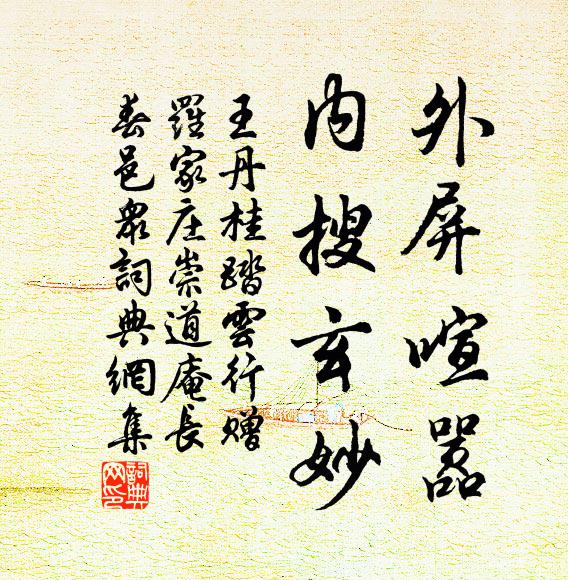 外屏喧嚣
内搜玄妙
王丹桂踏雲行赠
羅家庄崇道庵長
春邑衆詞典網集
詞典网印